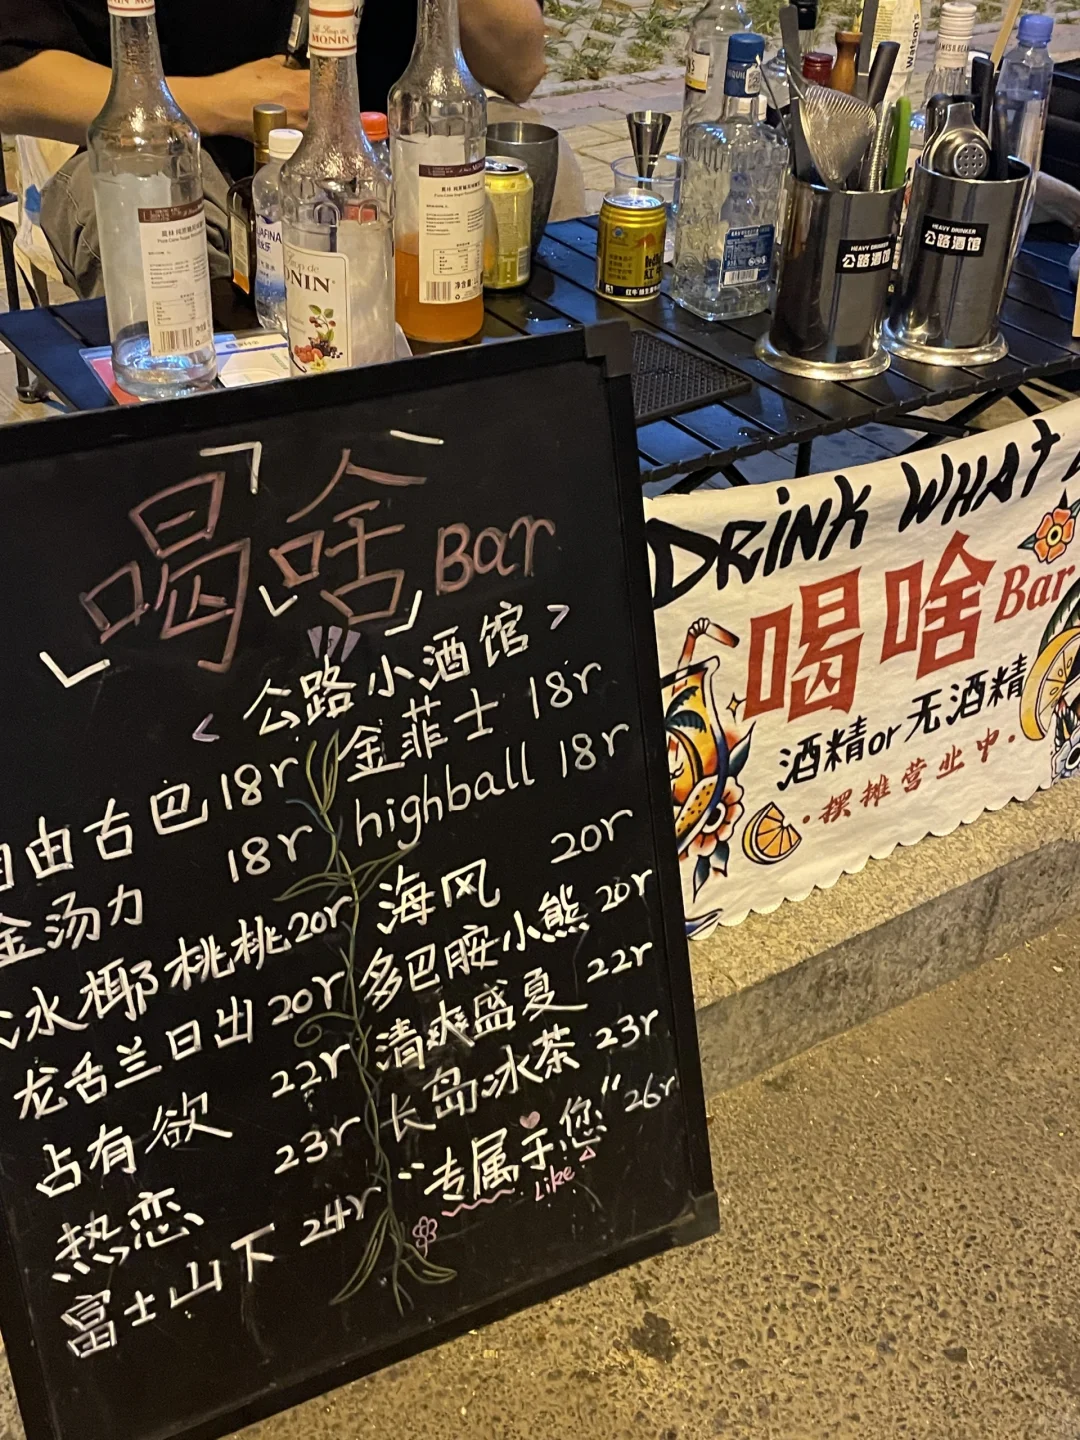 MONIN
MONIN
Watson's
HEAVY DRINKER
公路酒馆
HEAVY DRINKER
公路酒馆
「喝啥」Bar
<公路小酒馆>
自由古巴 18r
金汤力 18r
冰椰桃桃 20r
龙舌兰日出 20r
占有欲 22r
热恋 23r
富士山下 24r
金菲士 18r
highball 18r
海风 20r
多巴胺小熊 20r
清爽盛夏 22r
长岛冰茶 23r
“专属于您” 26r
Like
DRINK WHAT
喝啥Bar
酒精or无酒精
·摆摊营业中·